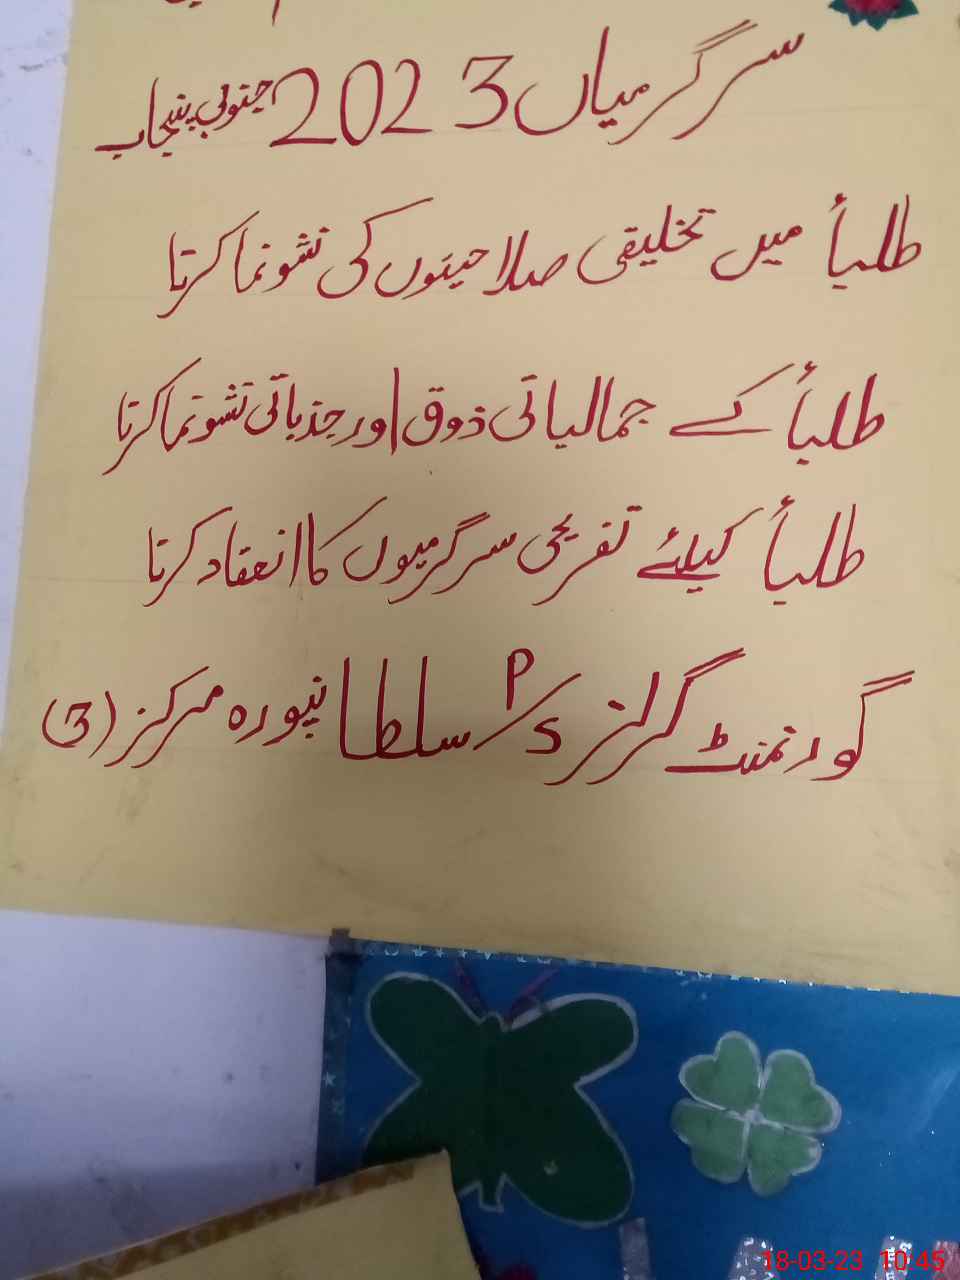 سرگرمیاں 2023 جنوبی پنجاب
طلبأ میں تخلیقی صلاحیتوں کی نشونما کرتا
طلبأ کے جمالیاتی ذوق اور جذباتی نشونما کرتا
طلبأ کیلئے تفریحی سرگرمیوں کا انعقاد کرتا
گورنمنٹ گرلز P/S سلطانپورہ مرکز (3)
18-03-23 10:45